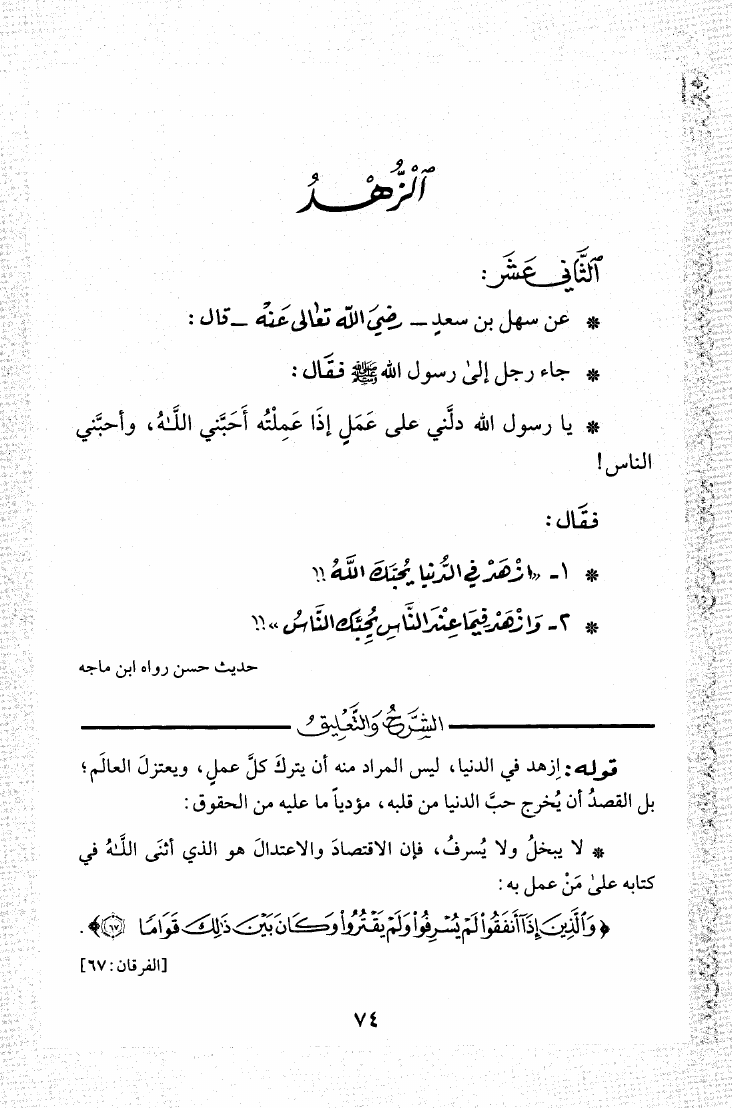 ٱلزُّهْدُ
ٱلثَّانِي عَشَر:
* عن سهل بن سعدٍ ــ رَضِيَ اللّه تعَالى عَنْه ــ قال:
* جاء رجل إلىٰ رسول الله ﷺ فقَال:
* يا رسول الله دلَّني على عَمَلٍ إذَا عَمِلْتُه أَحَبَّني اللَّـهُ، وأحبَّني
الناس!
فقَال:
* ١ـ «ازْهَدْ في الدُّنيا يُحِبَّكَ اللَّهُ!!
* ٢ـ وَازْهَدْ فِيمَا عِنْدَ النَّاسِ يُحِبَّكَ النَّاسُ»!!
حديث حسن رواه ابن ماجه
الشَّرْحُ وَالتَّعْلِيقُ
قوله: إزهد في الدنيا، ليس المراد منه أن يتركَ كلَّ عملٍ، ويعتزلَ العالَم؛
بل القصدُ أن يُخرج حبَّ الدنيا من قلبه، مؤدياً ما عليه من الحقوق:
* لا يبخلُ ولا يُسرفُ، فإن الاقتصادَ والاعتدالَ هو الذي أثنَى اللَّـهُ في
كتابه علىٰ مَنْ عمل به:
﴿وَالَّذِينَ إِذَآ أَنفَقُوا۟ لَمْ يُسْرِفُوا۟ وَلَمْ يَقْتُرُوا۟ وَكَانَ بَيْنَ ذَٰلِكَ قَوَامًا ٦٧﴾.
[الفرقان: ٦٧]
٧٤